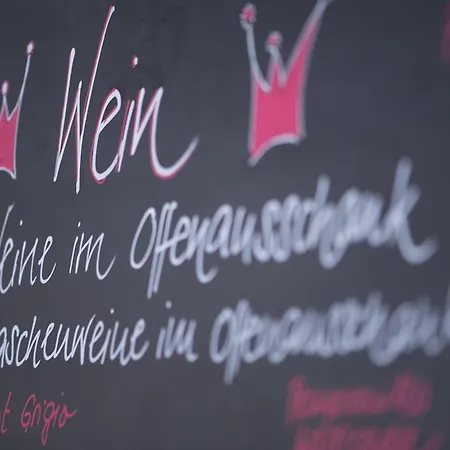 Wein
Weine im Offenausschank
aschenweine im Offenausschank
ot Grigio